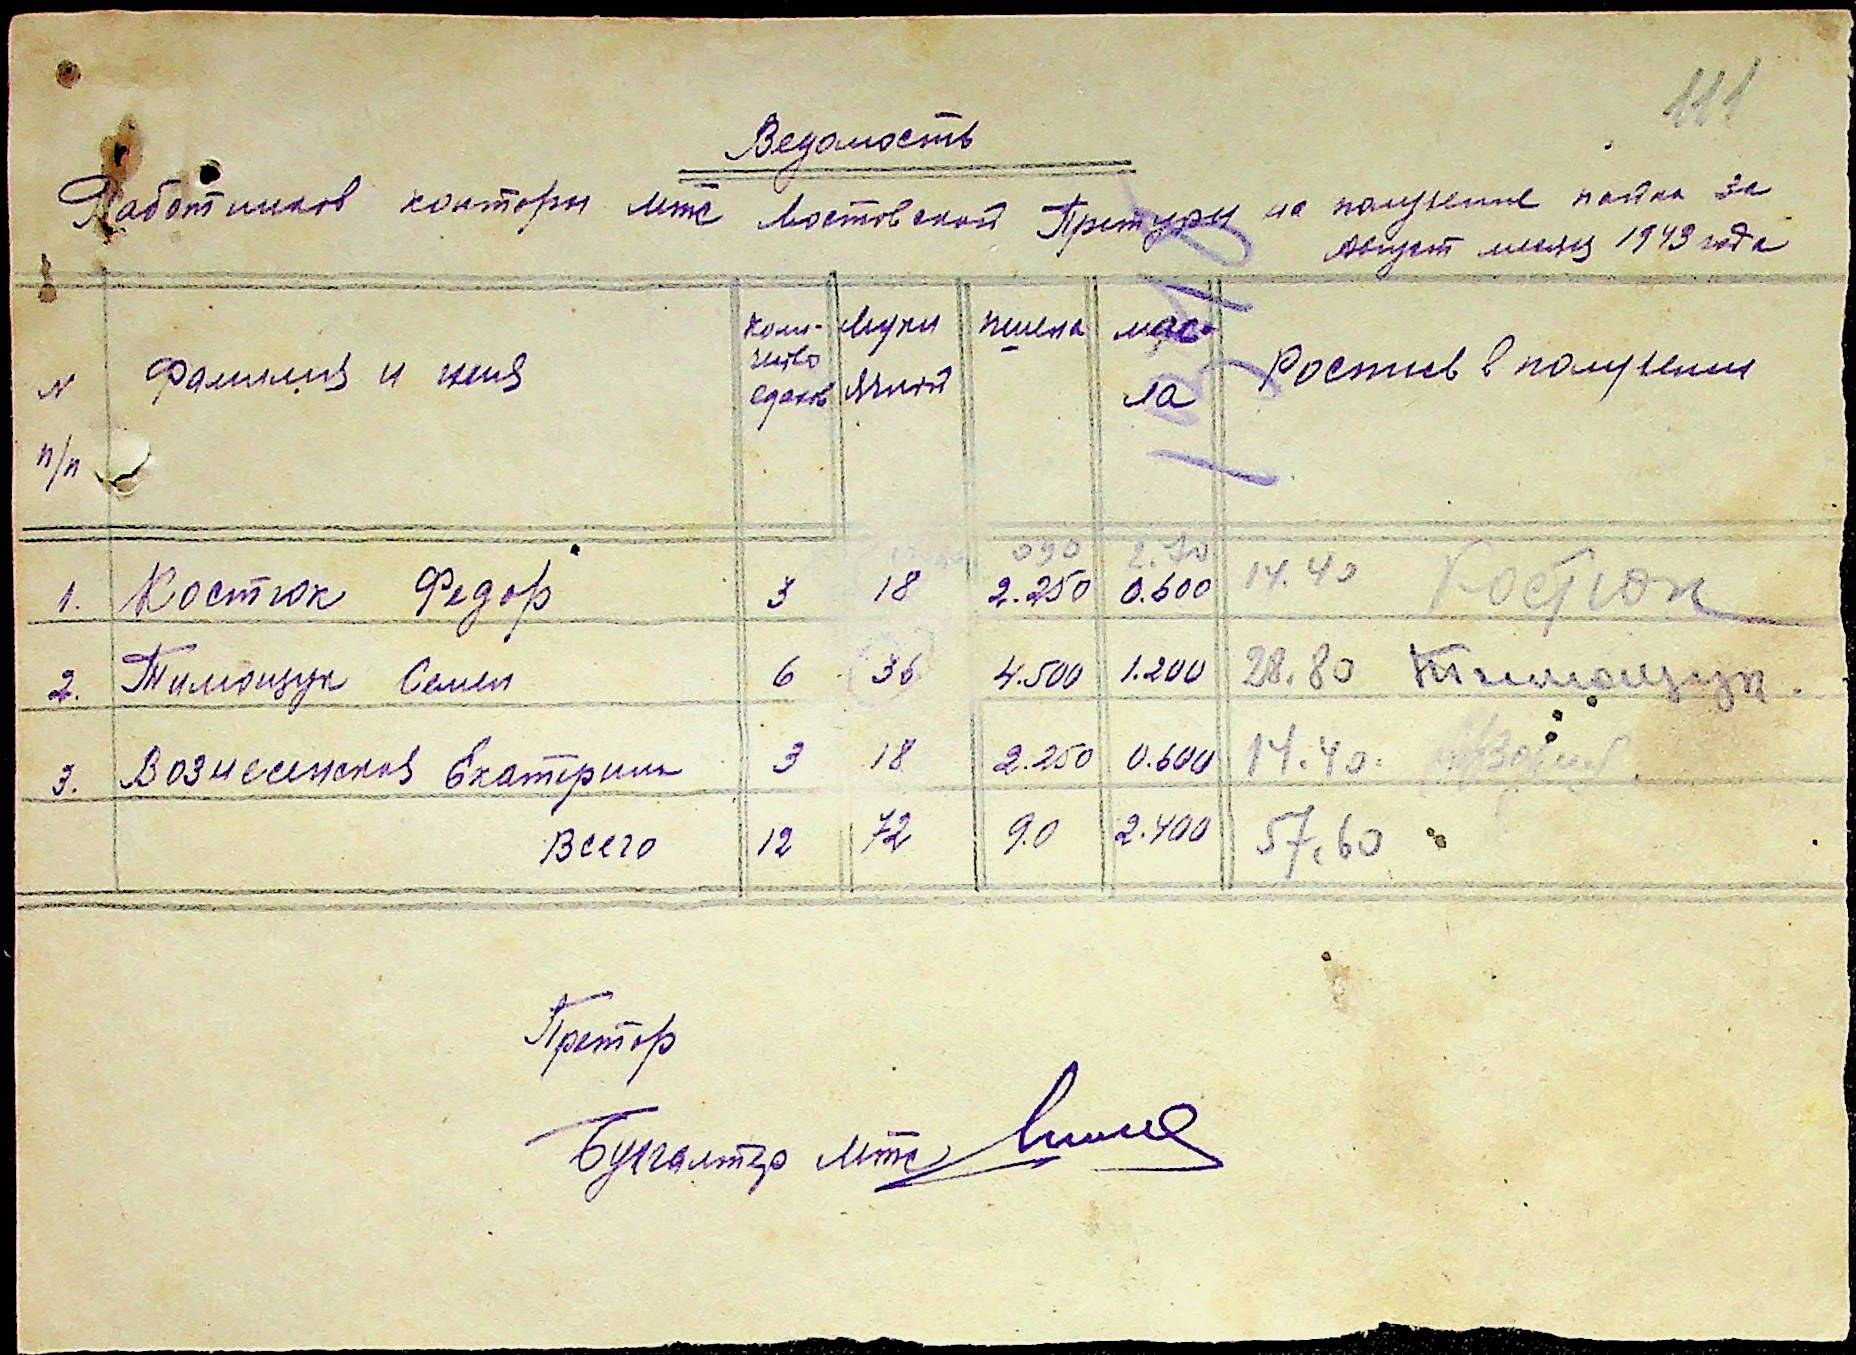 111
Ведомость
Работников конторы мтс Мостовской Претуры на получение пайка за
Август месяц 1943 года
N п/п Фамилия и имя Коли-чество едоков Муки ячной пшена мас-ла Роспись в получении
090 2.70
1. Костюк Федор 3 18 2.250 0.600 14.40 Костюк
2. Тимощук Семен 6 36 4.500 1.200 28.80 Тимощук.
3. Вознесенская Екатерина 3 18 2.250 0.600 14.40.
Всего 12 72 9.0 2.400 57,60
Претор
Бухгалтер мтс